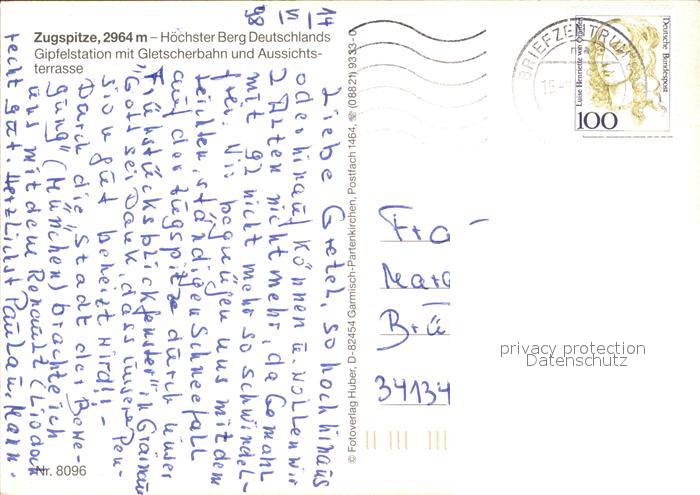 Zugspitze, 2964 m – Höchster Berg Deutschlands
Gipfelstation mit Gletscherbahn und Aussichts-
terrasse
14
IV
98
Liebe Gretel, so hoch hinaus
oder hinauf können u. wollen wir
2 Alten nicht mehr, da Gemahl
mit 92 nicht mehr so schwindel-
frei. Wir begnügen uns mit dem
leichten, ständigen Schneefall
auf der Zugspitze durch unser
"Frühstücksblickfenster" in Grainau
Gott sei Dank, dass unsere Pen-
sion gut beheizt wird!! -
Durch die "Stadt der Bewe-
gung" (München) brachte ich
uns mit dem Renault
recht gut. Herzlichst Paula u. Mann.
Nr. 8096
© Fotoverlag Huber, D-82454 Garmisch-Partenkirchen, Postfach 1464, ☏ (08821) 9333-0
BRIEFZENTRUM
15.
Deutsche Bundespost
Luise Henriette von Oranien
100
Fra
Marg
Brü
34134
privacy protection
Datenschutz